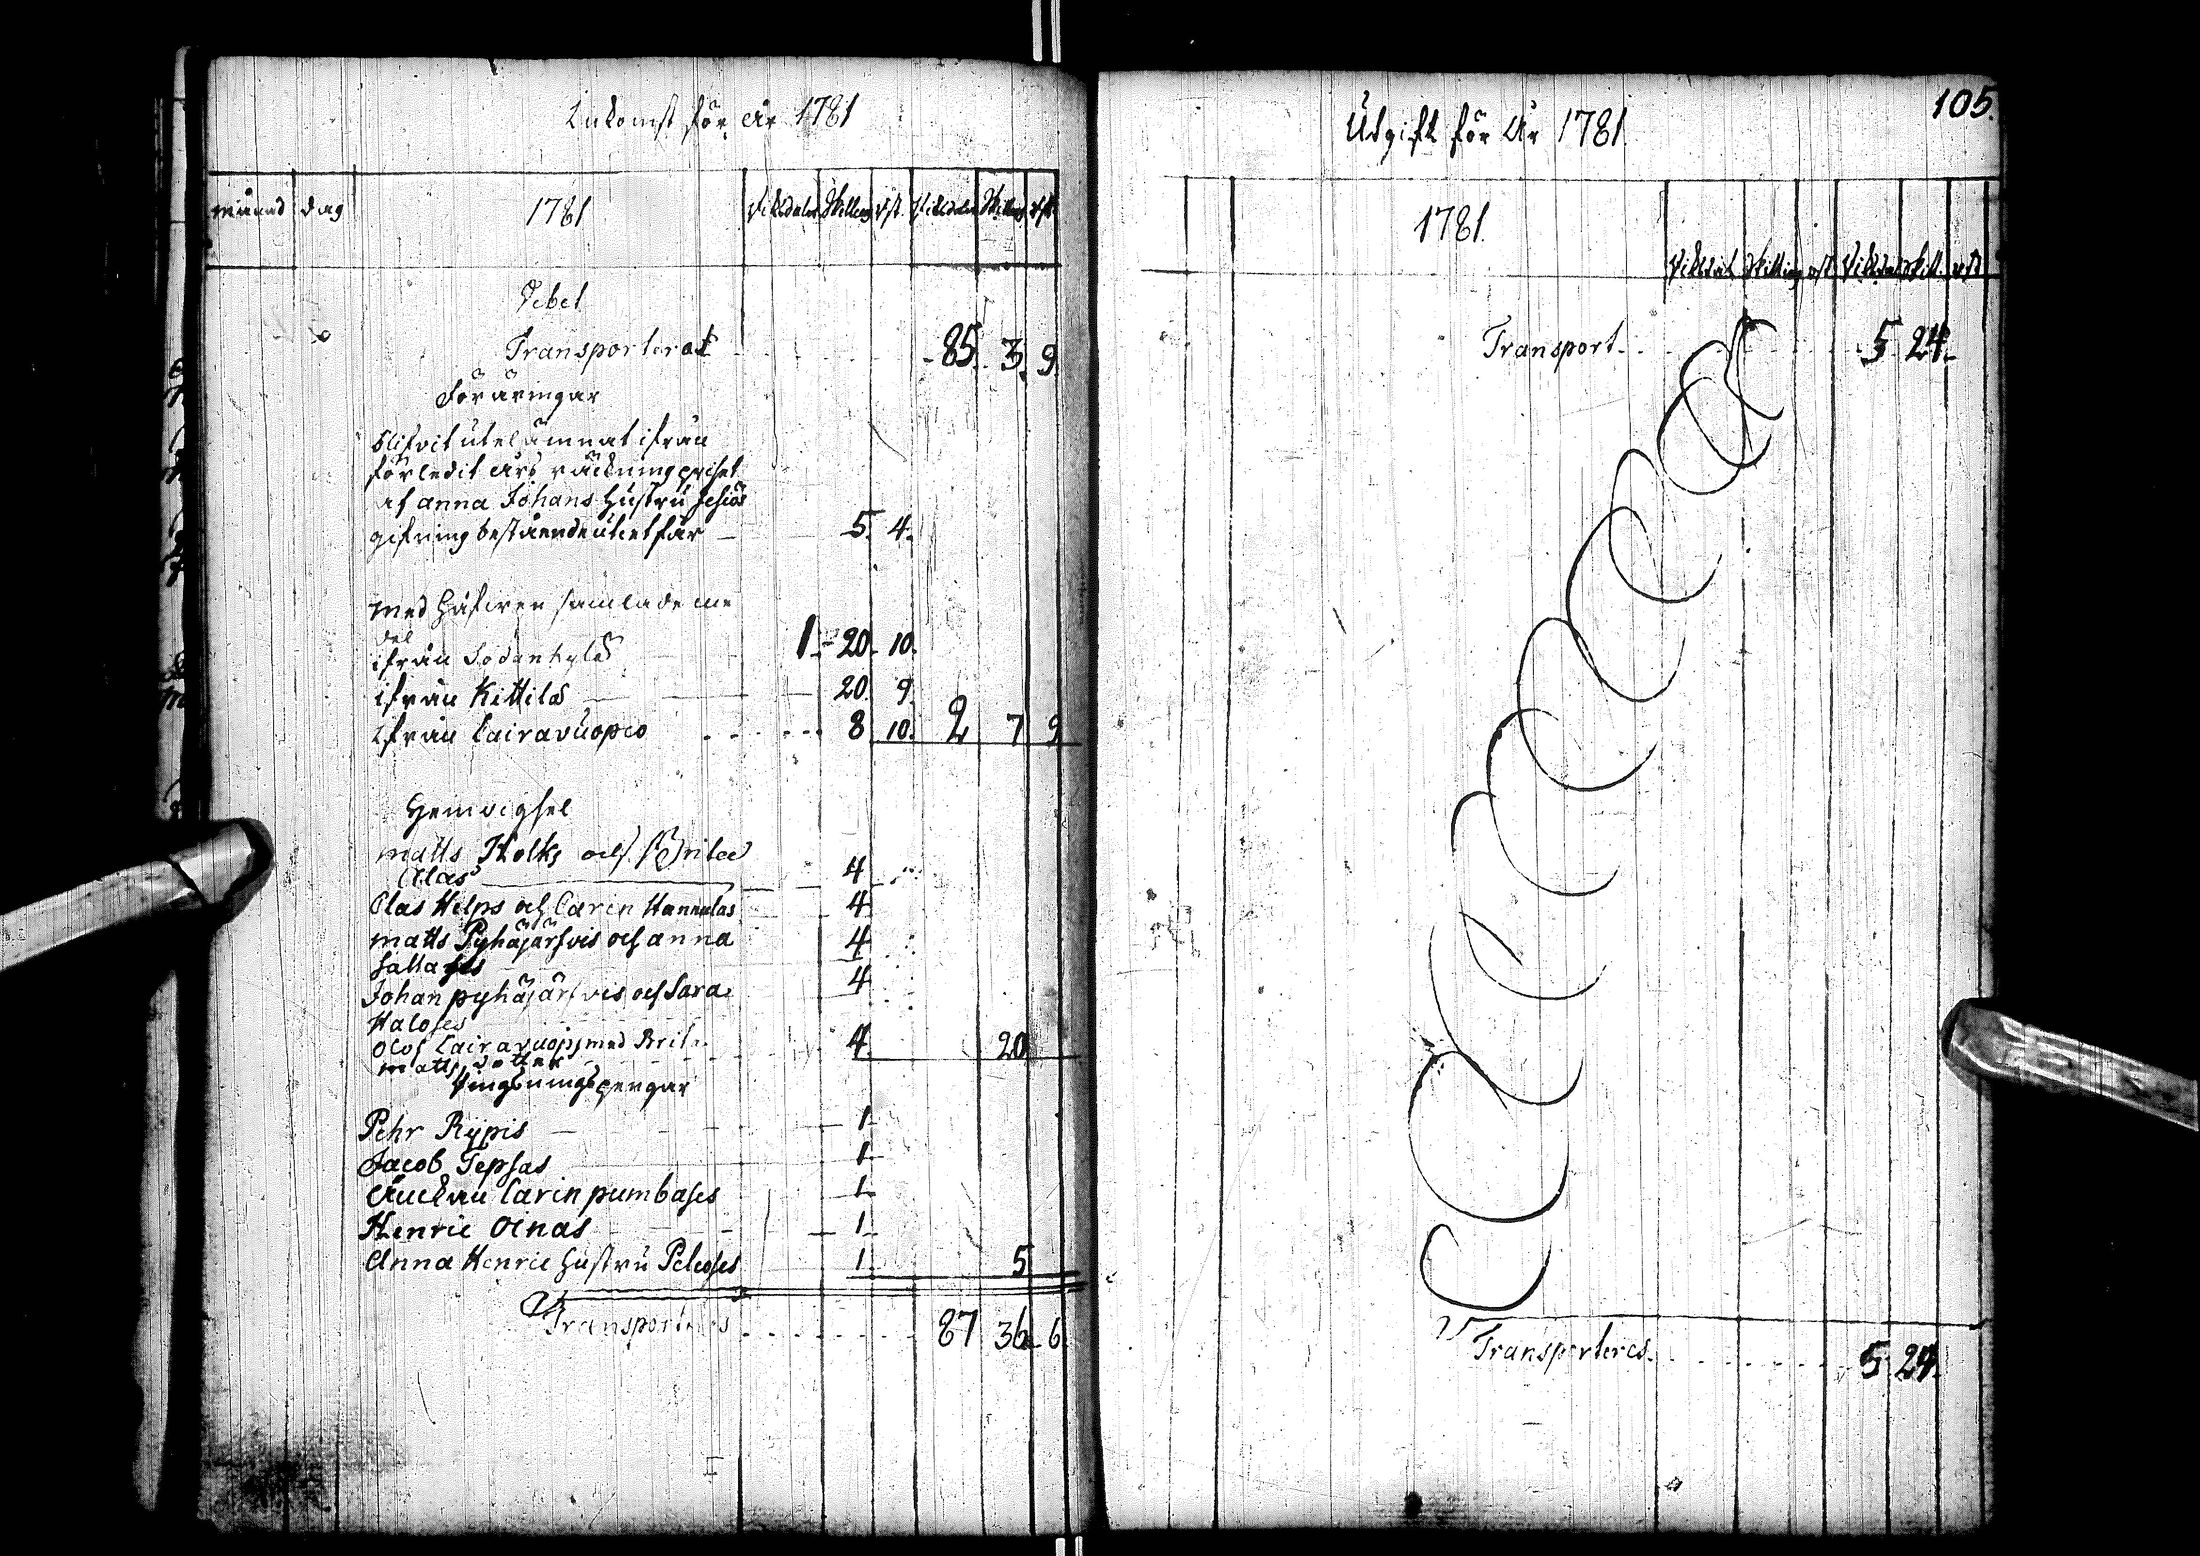 Inkomst för år 1781
månad dag 1781 Riksdaler Skilling rst. Riksdaler Skilling rst.
Debet
Transporterat 85. 3. 9.
Föräringar
Blifvit utelämnat ifrån
förledit års räckning priset
af anna Johans Hustru
gifning bestående utietfår 5. 4.
Med Håfwen samlade me
del
ifrån Sodankylä 1. 20. 10.
ifrån Kittilä 20. 9.
Ifrån Cairavuopio 8 10. 2 7 9
Hemvigsel
Matts Holks och Brita
Olas 4
Olas Helps och Carin Hannulas 4
Matts Pyhäjärfvis och anna 4
Salla
Johan pyhäjärfvis och Sara 4
Haloses
Olof Cairavuopis med Brita 4. 20
Matts dotter
Ringningspengar
Pehr Rypis 1
Jacob Tepsas 1
Änckan Carin pumbases 1
Henric Oinas 1
Anna Henric Hustru 1. 5
Transporteras 87 36 6
105.
Utgift för År 1781
1781. Riksdal Skilling rst Riksdal Skill. rst
Transport 5 24.
Transporteras 5 24.